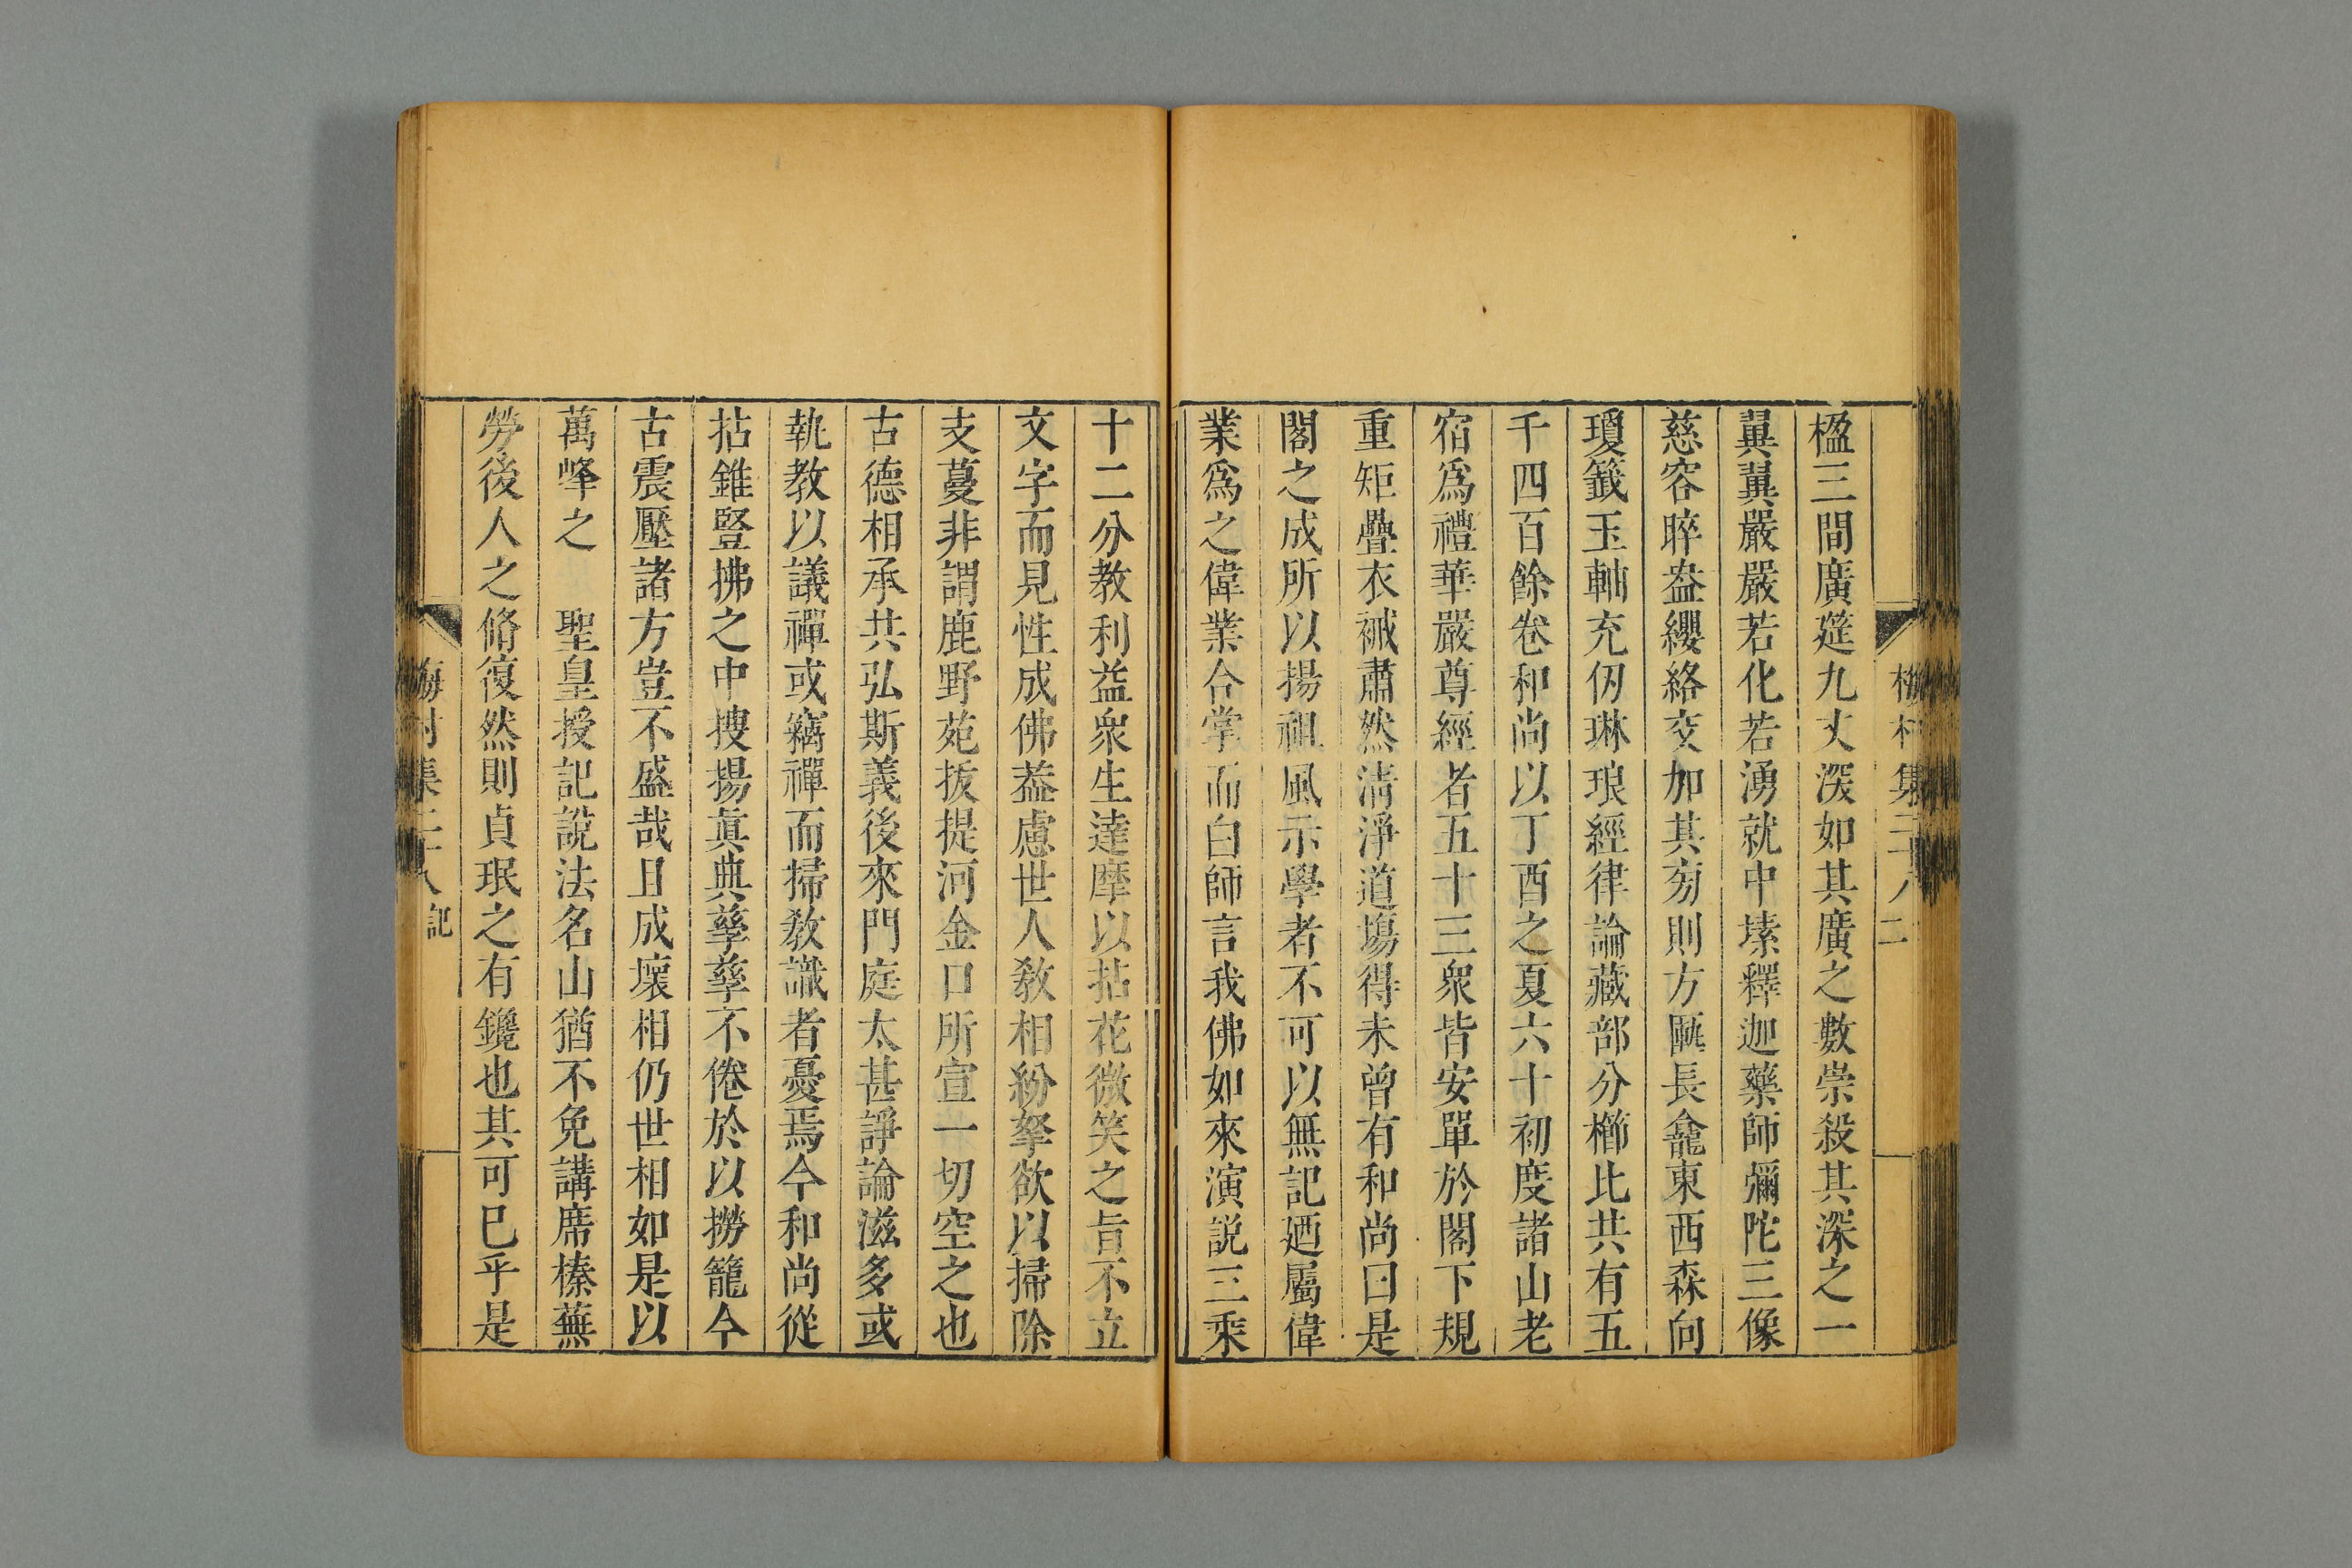 梅村集二十八 二
楹三間廣筵九丈深如其廣之數崇殺其深之一
翼翼嚴嚴若化若湧就中塐釋迦藥師彌陀三像
慈容睟盎纓絡交加其旁則方匭長龕東西森向
瓊籤玉軸充仞琳琅經律論藏部分櫛比共有五
千四百餘卷和尚以丁酉之夏六十初度諸山老
宿爲禮華嚴尊經者五十三衆皆安單於閣下規
重矩疊衣裓肅然清淨道場得未曾有和尚曰是
閣之成所以揚祖風示學者不可以無記廼屬偉
業爲之偉業合掌而白師言我佛如來演説三乘
十二分教利益衆生達摩以拈花微笑之旨不立
文字而見性成佛葢慮世人教相紛拏欲以掃除
支蔓非謂鹿野苑拔提河金口所宣一切空之也
古德相承共弘斯義後來門庭太甚諍論滋多或
執教以議禪或竊禪而掃教識者憂焉今和尚從
拈錐豎拂之中搜揚眞典孳孳不倦於以撈籠今
古震壓諸方豈不盛哉且成壞相仍世相如是以
萬峰之　聖皇授記說法名山猶不免講席榛蕪
勞後人之脩復然則貞珉之有鑱也其可巳乎是
梅村集二十八 記